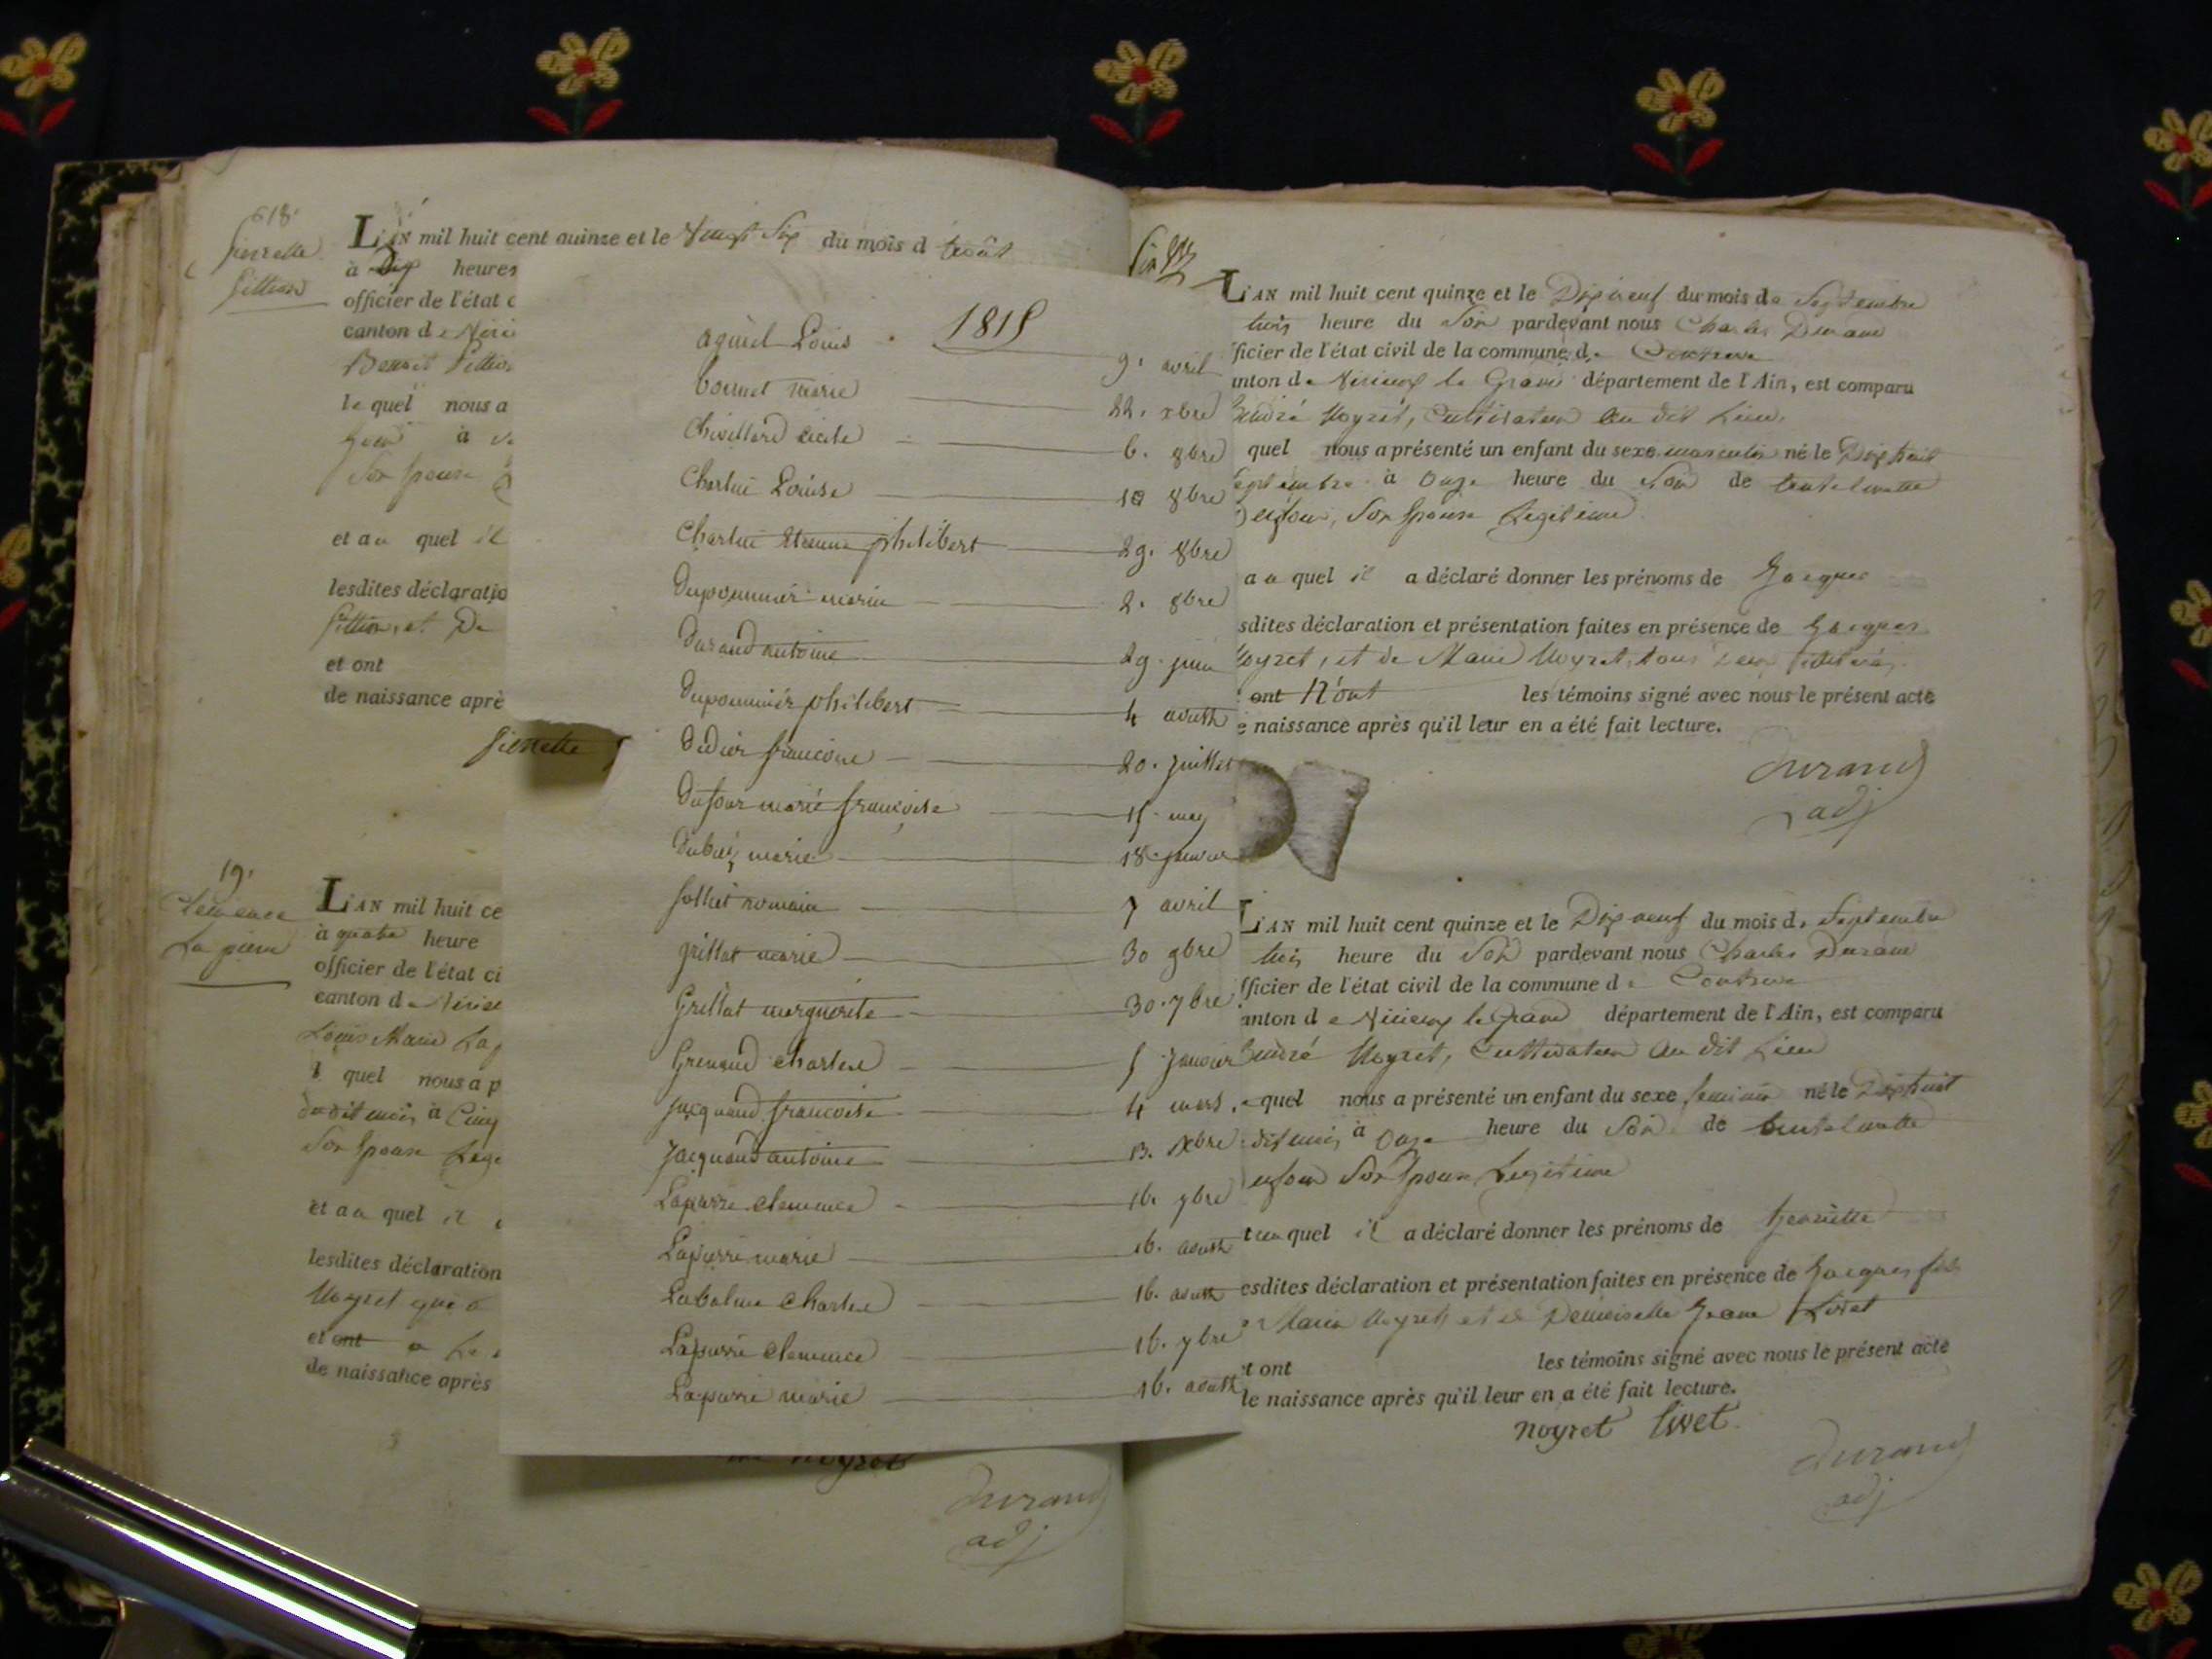 618.
Pierrette
fillion
L'AN mil huit cent quinze et le vingt Six du mois d août
à Dix heures
officier de l'état c
canton de
Benoit
le quel nous a
à
Son Epouse
et au quel il
lesdites déclaratio
fillion, et De
et ont
de naissance aprè
Pierrette
19.
Clémence
La pierre
L'AN mil huit ce
à quatre heure
officier de l'état ci
canton de
Louis Marie Lap
l quel nous a p
du dit mois à Cinq
Son Epouse Lege
et au quel il
lesdites déclaration
Noyret que
et ont a
de naissance après
noyret
durand
adj
1815
aguiel Louis 9. avril
bonnet marie 22. xbre
Chivillard cicile 6. 9bre
Charlui Louise 10 8bre
Charlui Etienne philibert 29. 8bre
Duponmier marie 2. 8bre
Durand antoine 29. juin
Duponmier philibert 4 aoust
Didier françoise 20. juillet
Dufour marie françoise 15. may
Dubiez marie 18. janvier
folliet romain 7 avril
grillat marie 30 9bre
Grillat marguerite 30. 7bre
Grenand charlese 5 Janvier
Jacquand françoise 4 mars.
Jacquand antoine 13. Xbre
Lapierre clemence 16. 7bre
Lapierre marie 16. aoust
Labalme charlese 16. aoust
Lapierre clemence 16. 7bre
Lapierre marie 16. aoust
L'AN mil huit cent quinze et le Dix neuf du mois de Septembre
trois heure du Soir pardevant nous Charles Durand
ficier de l'état civil de la commune de
anton de le Grand département de l'Ain, est comparu
André Noyret, Cultivateur au dit Lieu,
quel nous a présenté un enfant du sexe masculin né le Dix huit
Septembre à Onze heure du Soir de
Dufour, Son Epouse Legitime
a u quel il a déclaré donner les prénoms de Jacques
sdites déclaration et présentation faites en présence de Jacques
Noyret, et de Marie Noyret, tous deux
ont N'ont les témoins signé avec nous le présent acte
e naissance après qu'il leur en a été fait lecture.
durand
adj
L'AN mil huit cent quinze et le Dix neuf du mois de Septembre
trois heure du Soir pardevant nous Charles Durand
fficier de l'état civil de la commune de
anton de le Grand département de l'Ain, est comparu
André Noyret, Cultivateur au dit Lieu
e quel nous a présenté un enfant du sexe feminin né le Dix huit
dit mois à Onze heure du Soir de
ufour Son Epouse Legitime
t au quel il a déclaré donner les prénoms de Henriette
esdites déclaration et présentation faites en présence de Jacques fils
Marie Noyret et de Demoiselle Jeanne Livet
t ont les témoins signé avec nous le présent acte
le naissance après qu'il leur en a été fait lecture.
noyret livet
durand
adj